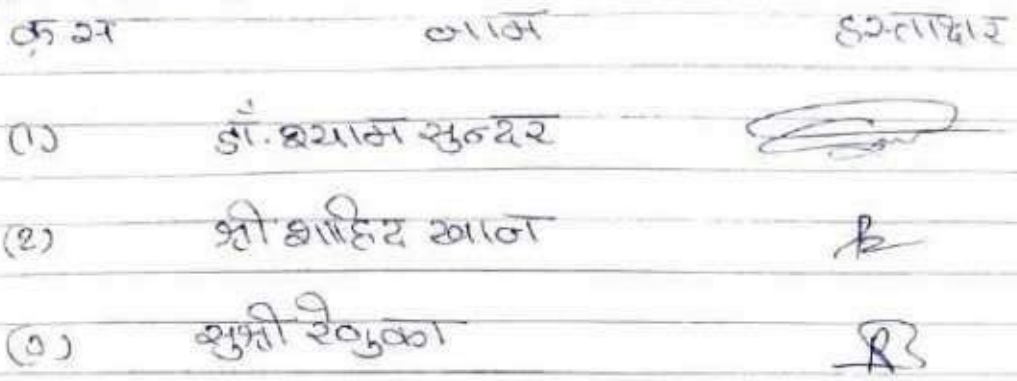 क्र स नाम हस्ताक्षर
(1) डॉ. श्याम सुन्दर
(2) श्री शाहिद खान
(3) सुश्री रेणुका